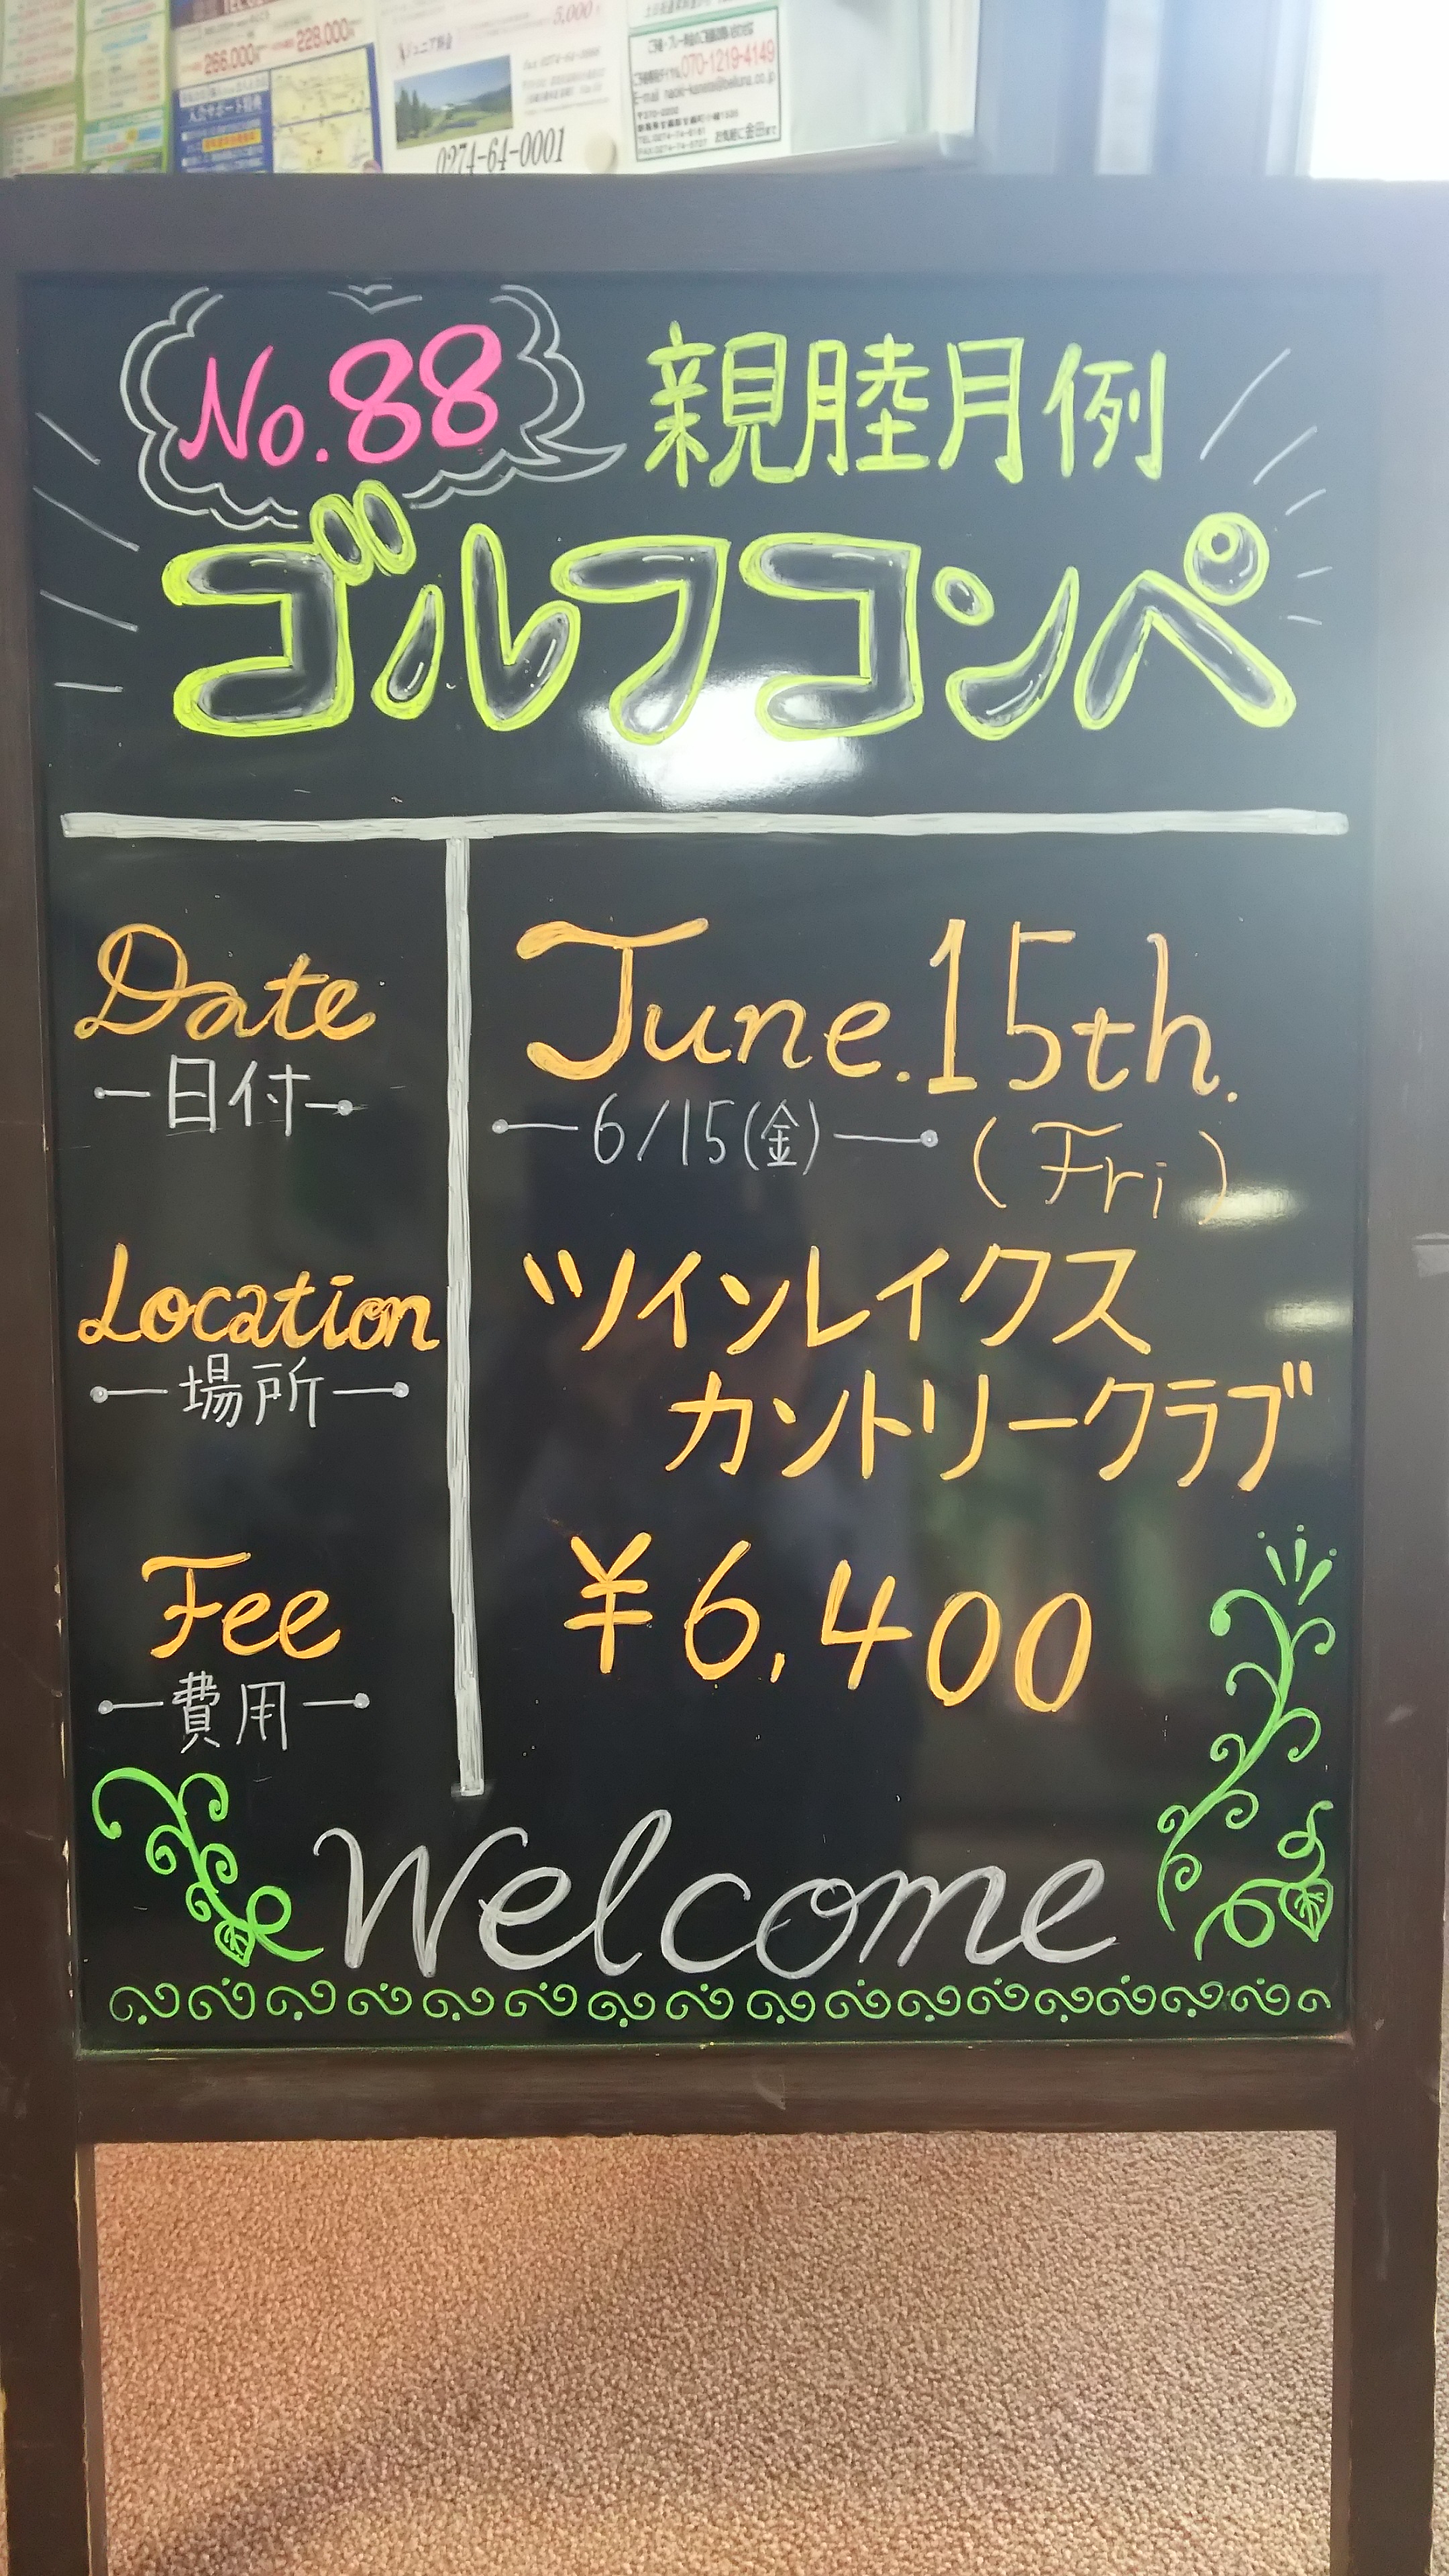 266,000
228,000
5,000
入会サポート特典
0274-64-0001
070-1219-4149
No.88
親睦月例
ゴルフコンペ
Date
日付
June.15th.
6/15(金)
(Fri)
Location
場所
ツインレイクス
カントリークラブ
Fee
費用
¥6,400
Welcome